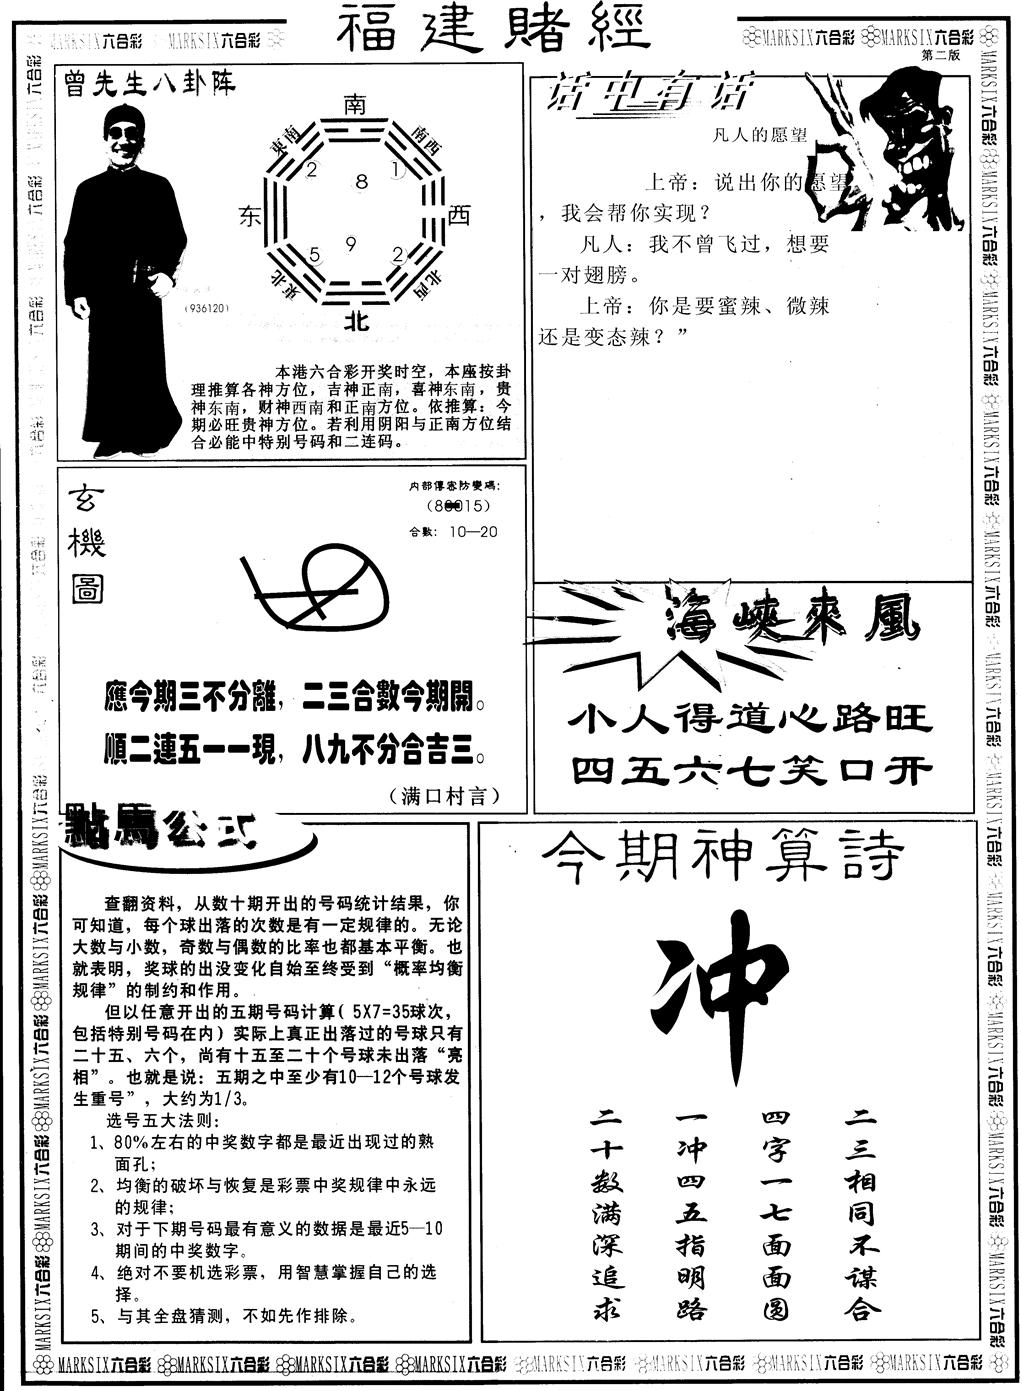 福建賭經
MARKSIX六合彩 MARKSIX六合彩
MARKSIX六合彩 MARKSIX六合彩
第二版
曾先生八卦阵
南
東南
南西
2
1
8
东
西
5
9
2
東北
北西
北
(936120)
本港六合彩开奖时空，本座按卦
理推算各神方位，吉神正南，喜神东南，贵
神东南，财神西南和正南方位。依推算：今
期必旺贵神方位。若利用阴阳与正南方位结
合必能中特别号码和二连码。
话中有话
凡人的愿望
上帝：说出你的愿望
，我会帮你实现？
凡人：我不曾飞过，想要
一对翅膀。
上帝：你是要蜜辣、微辣
还是变态辣？”
玄機圖
内部傳密防變碼：
合數：10—20
應今期三不分離，二三合數今期開。
順二連五一一現，八九不分合吉三。
（满口村言）
海峽來風
小人得道心路旺
四五六七笑口开
點馬公式
查翻资料，从数十期开出的号码统计结果，你
可知道，每个球出落的次数是有一定规律的。无论
大数与小数，奇数与偶数的比率也都基本平衡。也
就表明，奖球的出没变化自始至终受到“概率均衡
规律”的制约和作用。
但以任意开出的五期号码计算( 5X7=35球次，
包括特别号码在内）实际上真正出落过的号球只有
二十五、六个，尚有十五至二十个号球未出落“亮
相”。也就是说：五期之中至少有10—12个号球发
生重号”，大约为1/3。
选号五大法则：
1、80%左右的中奖数字都是最近出现过的熟
面孔；
2、均衡的破坏与恢复是彩票中奖规律中永远
的规律；
3、对于下期号码最有意义的数据是最近5—10
期间的中奖数字。
4、绝对不要机选彩票，用智慧掌握自己的选
择。
5、与其全盘猜测，不如先作排除。
今期神算詩
冲
二三相同不谋合
四字一七面面圆
一冲四五指明路
二十数满深追求
MARKSIX六合彩 MARKSIX六合彩 MARKSIX六合彩 MARKSIX六合彩 MARKSIX六合彩 MARKSIX六合彩 MARKSIX六合彩 MARKSIX六合彩